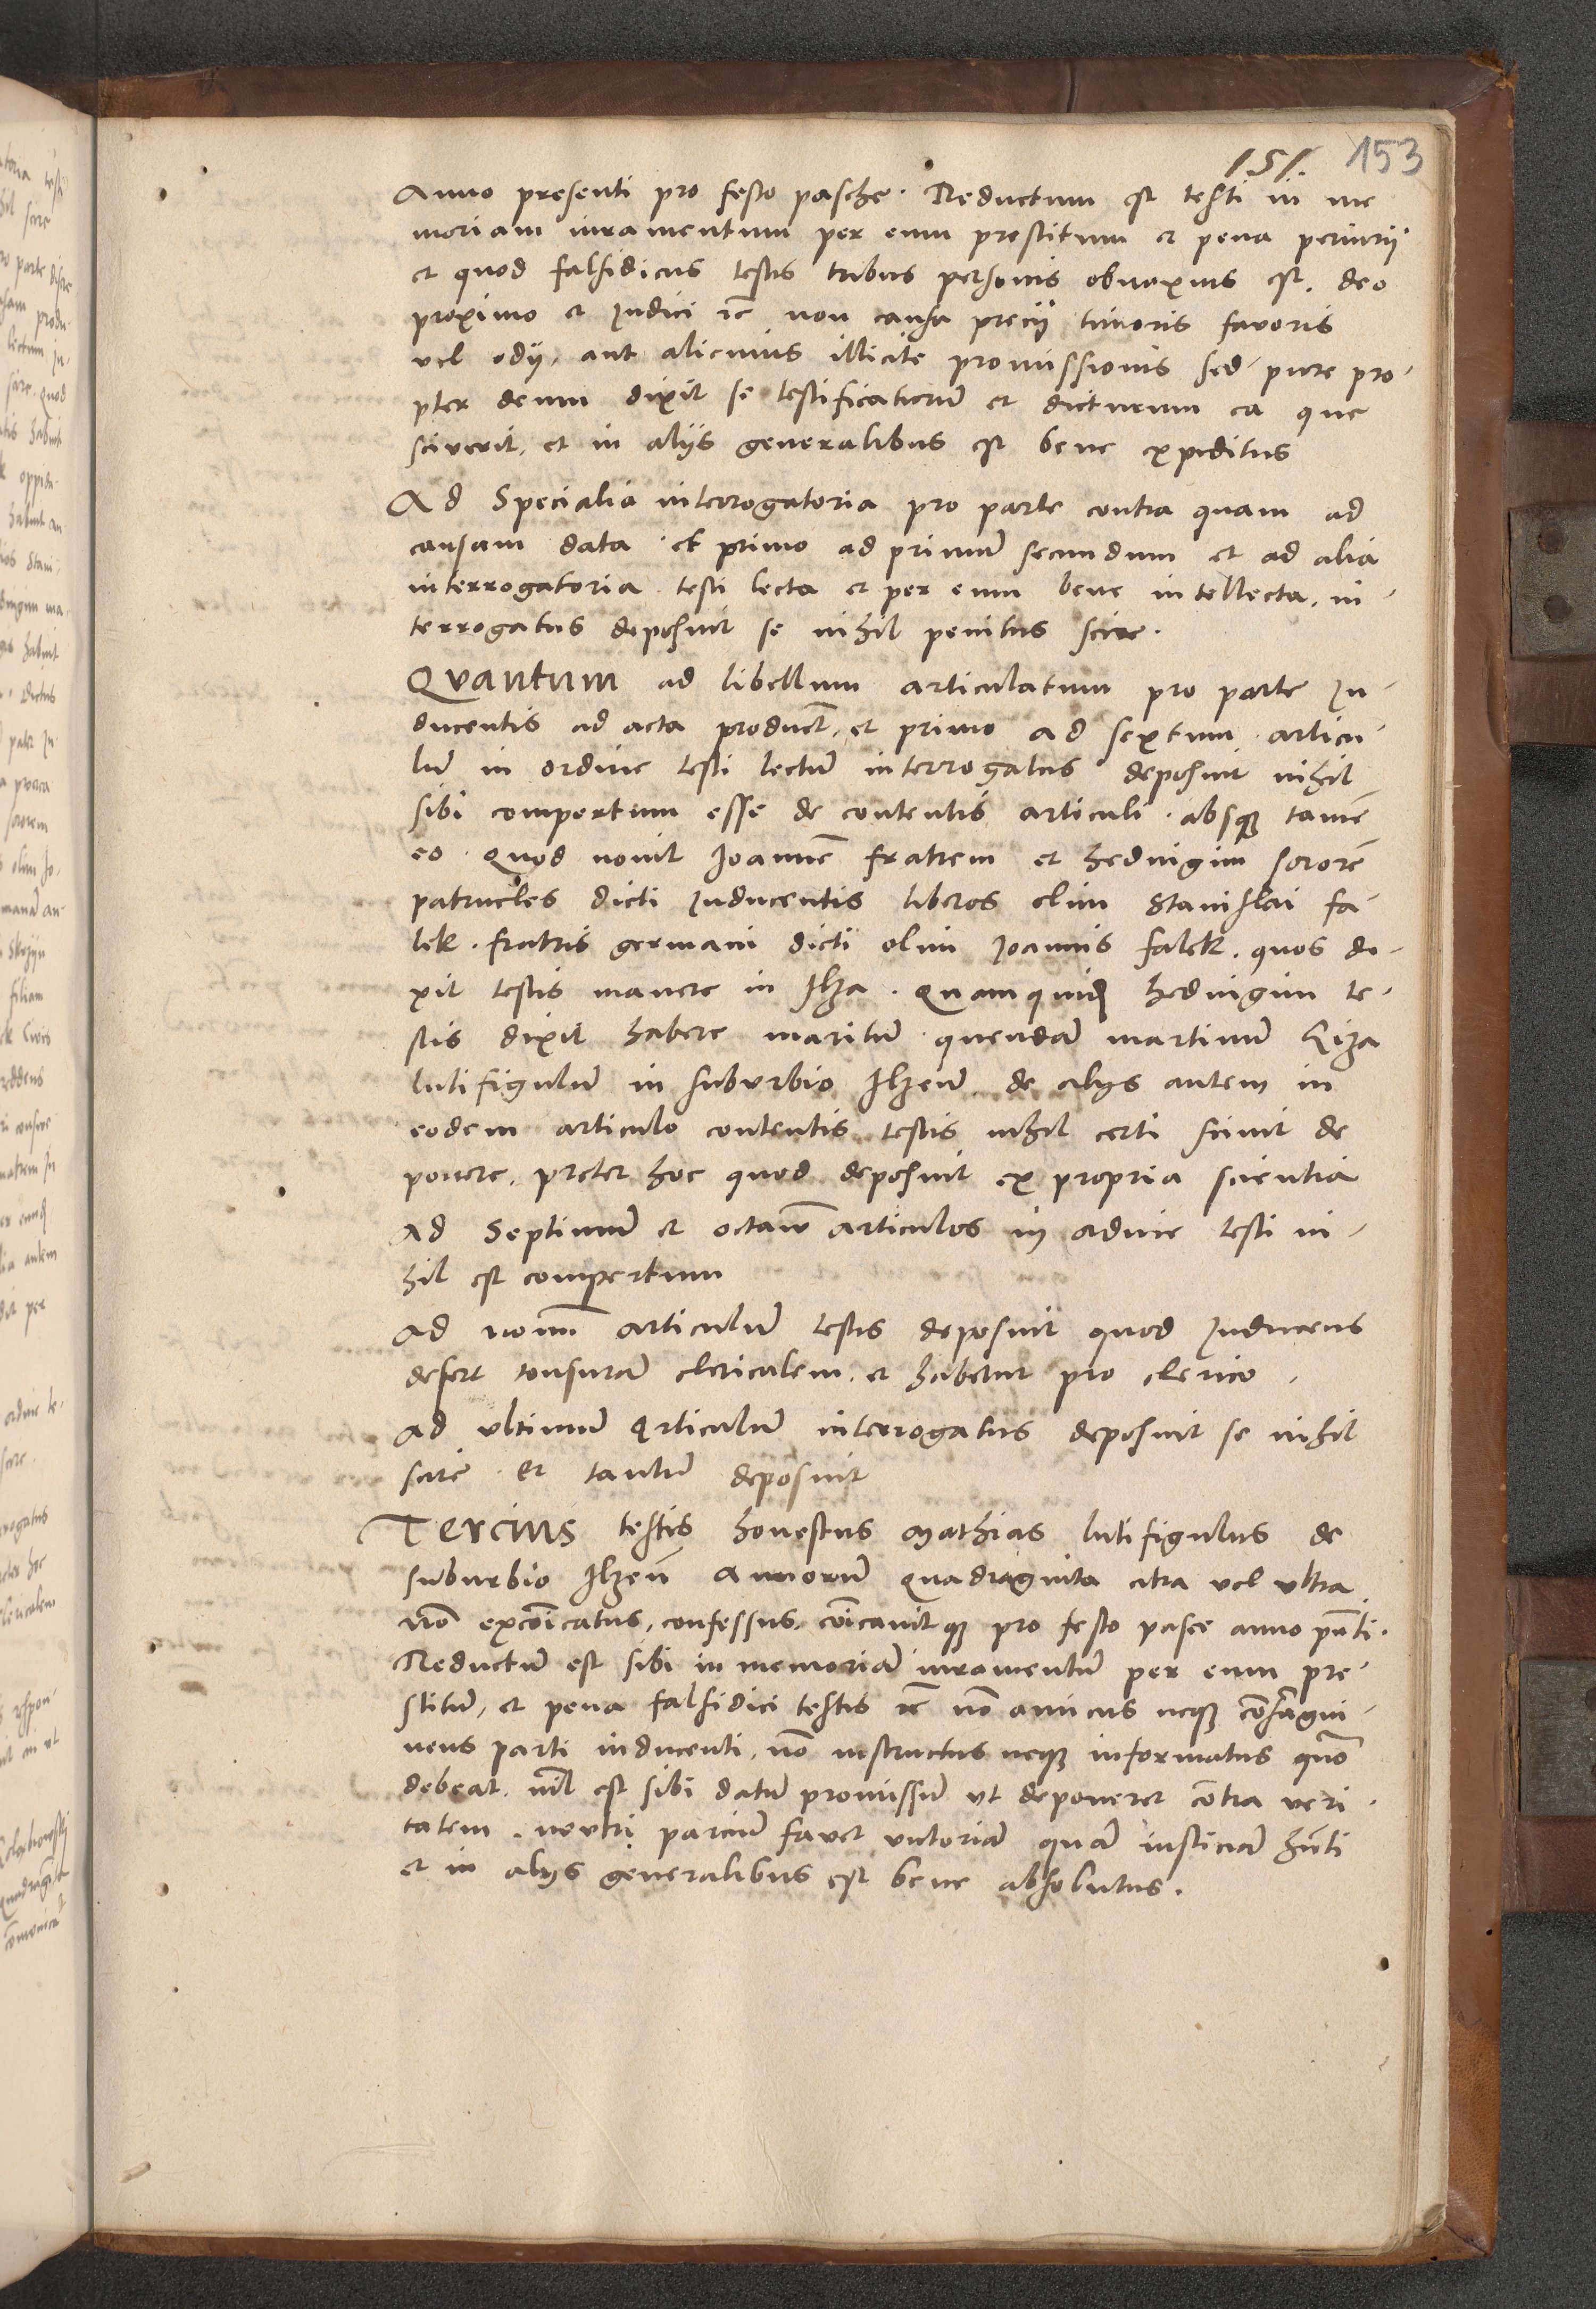 151. 153
Anno presenti pro festo pasche. Reductum est testi in me
moriam iuramentum per eum prestitum et pena periurij
et quod falsidicus testis tribus personis obnoxius est. deo
proximo et Iudici etc non causa precij timoris favoris
vel odij, aut alicuius illicite promissionis sed pure pro-
pter deum dixit se testificaturũ et dicturum ea que
sciverit, et in alijs generalibus est bene expeditus
Ad Specialia interrogatoria pro parte contra quam ad
causam data et primo ad primũ secundum et ad alia
interrogatoria testi lecta et per eum bene intellecta, in-
terrogatus deposuit se nihil penitus scire.
Quantum ad libellum articulatum pro parte In-
ducentis ad acta product̃, et primo ad sextum articu-
lũ in ordine testi lectũ interrogatus deposuit nihil
sibi compertum esse de contentis articuli. absq̃ tamẽ
eo quod novit Joannẽ fratrem et hedvigim sororẽ
patrueles dicti Inducentis liberos olim Stanislai fa-
lek. fratris germani dicti olim Joannis falek. quos di-
xit testis manere in Ilza. Quamquidẽ hedvigim te-
stis dixit habere maritũ quendã martinũ Liza
lutifigulũ in suburbio Ilzeñ de alijs autem in
eodem articulo contentis testis nihil certi scivit de
ponere. preter hoc quod deposuit ex propria scientia
Ad Septimũ et octavũ articulos in ordine testi ni-
hil est compertum
Ad nonũ articulũ testis deposuit quod Inducens
defert tonsurã clericalem. et habetur pro clerico.
Ad ultimũ Articulũ interrogatus deposuit se nihil
scire. Et tantũ deposuit
Tercius testis honestus Mathias lutifigulus de
suburbio Ilzeñ Annorũ quadraginta citra vel ultra
nõ excõicatus, confessus, cõicavitq̃ pro festo pasce anno pñti.
Reductũ est sibi in memoriã iuramentũ per eum pre-
stitũ, et pena falsidici testis etc nõ amicus neq̃ cõsãgui-
neus parti inducenti, nõ instructus neq̃ informatus quõ
debeat. nil est sibi datũ promissũ ut deponeret cõtra veri-
tatem. neutri parciũ favet victoriã quã iusticiã hñti
et in alijs generalibus est bene absolutus.